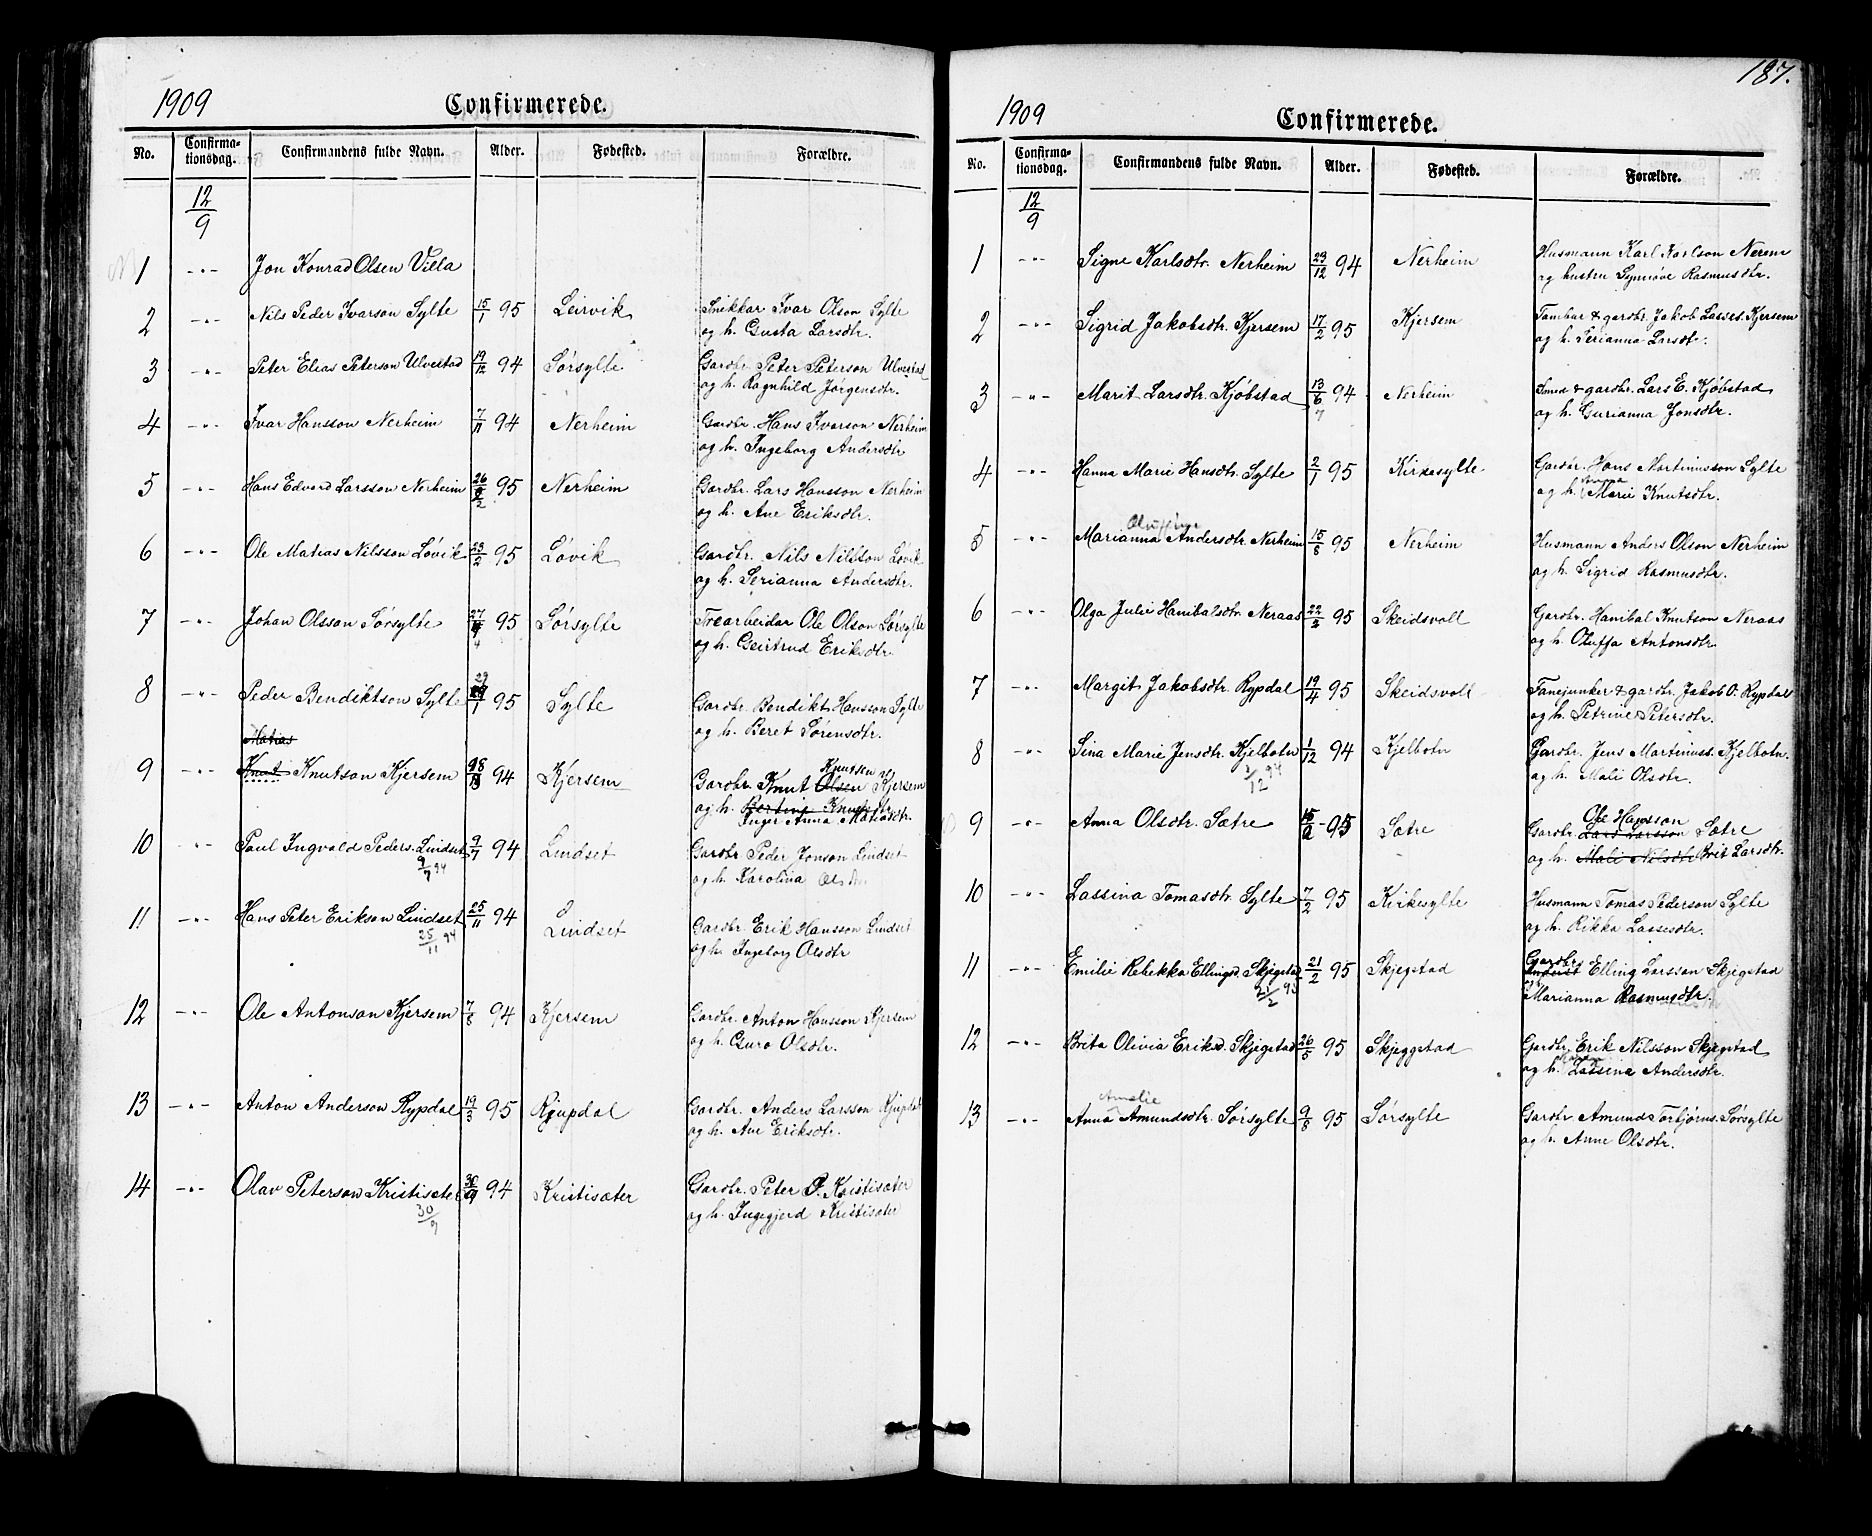 187.
1909 Confirmerede.
No. Confirma-tionsdag. Confirmandens fulde Navn. Alder. Fødested. Forældre.
12/9
1 -"- Jon Konrad Olsen Villa
2 -"- Nils Peder Ivarson Sylte 15/1 95 Leirvik Snikkar Ivar Olson Sylte
og h. Gusta Larsdtr.
3 -"- Peter Elias Peterson Ulvestad 19/12 94 Sørsylte Gardbr. Peter Peterson Ulvestad
og h. Ragnhild Jørgensdtr.
4 -"- Ivar Hansson Nerheim 7/11 94 Nerheim Gardbr. Hans Ivarson Nerheim
og h. Ingeborg Andersdtr
5 -"- Hans Edvard Larsson Nerheim 26/2 95 Nerheim Gardbr. Lars Hansson Nerheim
og h. Ane Eriksdtr.
6 -"- Ole Matias Nilsson Løvik 23/2 95 Løvik Gardbr. Nils Nilsson Løvik
og h. Serianna Andersdtr.
7 -"- Johan Olsson Sørsylte 27/4 95 Sørsylte Trearbeidar Ole Olson Sørsylte
4 og h. Geirtrud Eriksdtr.
8 -"- Peder Bendiktson Sylte 29/1 95 Sylte Gardbr. Bendikt Hansson Sylte
og h. Beret Sørensdtr.
Matias
9 -"- Knut Knutson Kjersem 94 Kjersem Gardbr. Knut Olsen Knutson Kjersem
og h. Bertine Knutsdtr
Inger Anna Matiasdtr.
10 -"- Paul Ingvald Peders. Lindset 9/7 94 Lindset Gardbr Peder Jonson Lindset
9/7 94 og h. Karolina Olsdtr.
11 -"- Hans Peter Erikson Lindset 25/11 94 Lindset Gardbr. Erik Hansson Lindset
25/11 94 og h. Ingeborg Olsdtr
12 -"- Ole Antonsan Kjersem 7/8 94 Kjersem Gardbr Anton Hansson Kjersem
og h. Guro Olsdtr.
13 -"- Anton Anderson Rypdal 19/3 95 Rjupdal Gardbr. Anders Larsson Rjupdal
og h. Ane Eriksdtr.
14 -"- Olav Peterson Kristisæter 30/9 94 Kristisæter Gardbr. Peter O. Kristisæter
30/9 og h. Ingegjerd Kristisæter
1909 Confirmerede.
No. Confirma-tionsdag. Confirmandens fulde Navn. Alder. Fødested. Forældre.
12/9
1 -"- Signe Karlsdtr. Nerheim 23/12 94 Nerheim Husmann Karl Karlson Nerem
og hustru Synnøve Rasmusdtr.
2 -"- Sigrid Jakobsdtr. Kjersem 17/2 95 Kjersem Tambur & gardbr. Jakob Lasses. Kjersem
og h. Serianna Larsdt.
3 -"- Marit Larsdtr. Kjøbstad 13/6 94 Nerheim Smed & gardbr. Lars E. Kjøbstad
7 og h. Gurianna Jonsdtr.
4 -"- Hanna Marie Hansdtr. Sylte 2/1 95 Kirkesylte Gardbr. Hans Martinusson Sylte
og h. Marie Knutsdtr.
5 -"- Marianna Andersdtr. Nerheim 15/8 95 Nerheim Husmann Anders Olson Nerheim
og h. Sigrid Rasmusdtr.
6 -"- Olga Julie Hanibalsdtr. Neraas 22/2 95 Skeidsvoll Gardbr. Hanibal Knutson Neraas
og h. Oluffa Antonsdtr.
7 -"- Margit Jakobsdtr. Rypdal 19/4 95 Skeidsvoll Fanejunker & gardbr. Jakob O. Rypdal
og h. Petrine Petersdtr.
8 -"- Sina Marie Jensdtr. Kjelbotn 1/12 94 Kjelbotn Gardbr. Jens Martinuss. Kjelbotn.
1/12 94 og h. Mali Olsdtr.
9 -"- Anna Olsdtr. Sætre 15/2 - 95 Sætre Gardbr. Lars Larsson Ole Hansson Sætre
og h. Mali Nilsdtr Brit Larsdtr.
10 -"- Lassina Tomasdtr. Sylte 7/2 95 Kirkesylte Husmann Tomas Pederson Sylte
og h. Rikka Lassesdtr.
11 -"- Emilie Rebekka Ellingsd. Skjegstad 21/2 95 Skjegstad Gardbr. Elling Larsson Skjegstad
21/2 95 og h. Marianna Rasmusdtr.
12 -"- Brita Olivia Eriksd. Skjegstad 26/5 95 Skjeggstad Gardbr. Erik Nilsson Skjegstad
og h. Lassina Andersdtr.
Amalie
13 -"- Anna Amundsdtr. Sørsylte 9/8 95 Sørsylte Gardbr Amund Torbjørns. Sørsylte
og h. Anne Olsdtr.